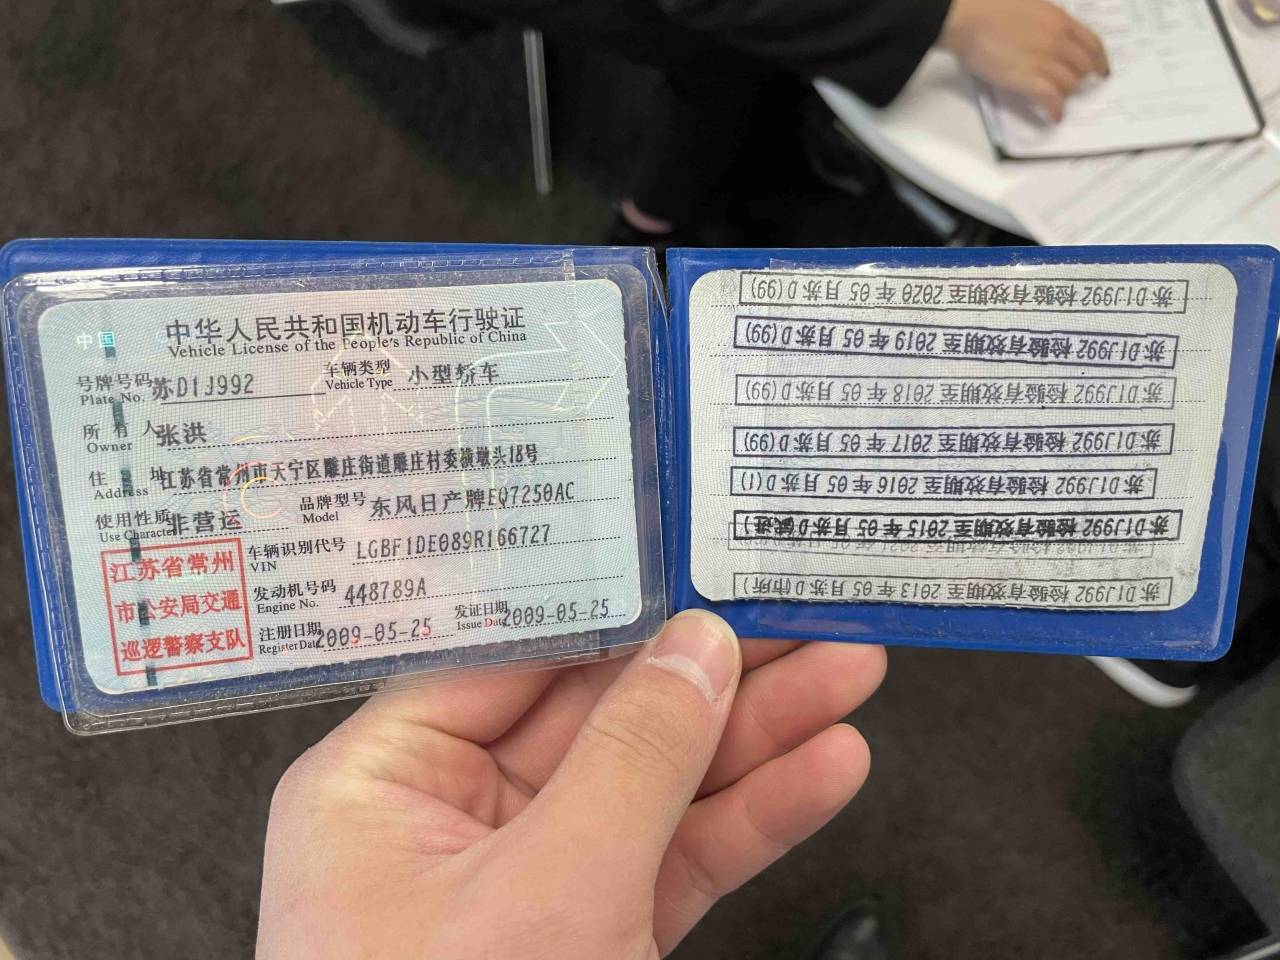 中国
中华人民共和国机动车行驶证
Vehicle License of the People's Republic of China
号牌号码 苏D1J992 车辆类型 小型轿车
Plate No. Vehicle Type
所有人 张洪
Owner
住址 江苏省常州市天宁区雕庄街道雕庄村委横墩头18号
Address
使用性质 非营运 品牌型号 东风日产牌EQ7250AC
Use Character Model
江苏省常州
市公安局交通
巡逻警察支队
车辆识别代号 LGBF1DE089R166727
VIN
发动机号码 448789A
Engine No.
注册日期 2009-05-25 发证日期 2009-05-25
Register Date Issue Date
苏D1J992 检验有效期至2020年05月苏D(99)
苏D1J992 检验有效期至2019年05月苏D(99)
苏D1J992 检验有效期至2018年05月苏D(99)
苏D1J992 检验有效期至2017年05月苏D(99)
苏D1J992 检验有效期至2016年05月苏D(1)
苏D1J992 检验有效期至2015年05月苏D(武进)
苏D1J992 检验有效期至2013年05月苏D(市所)